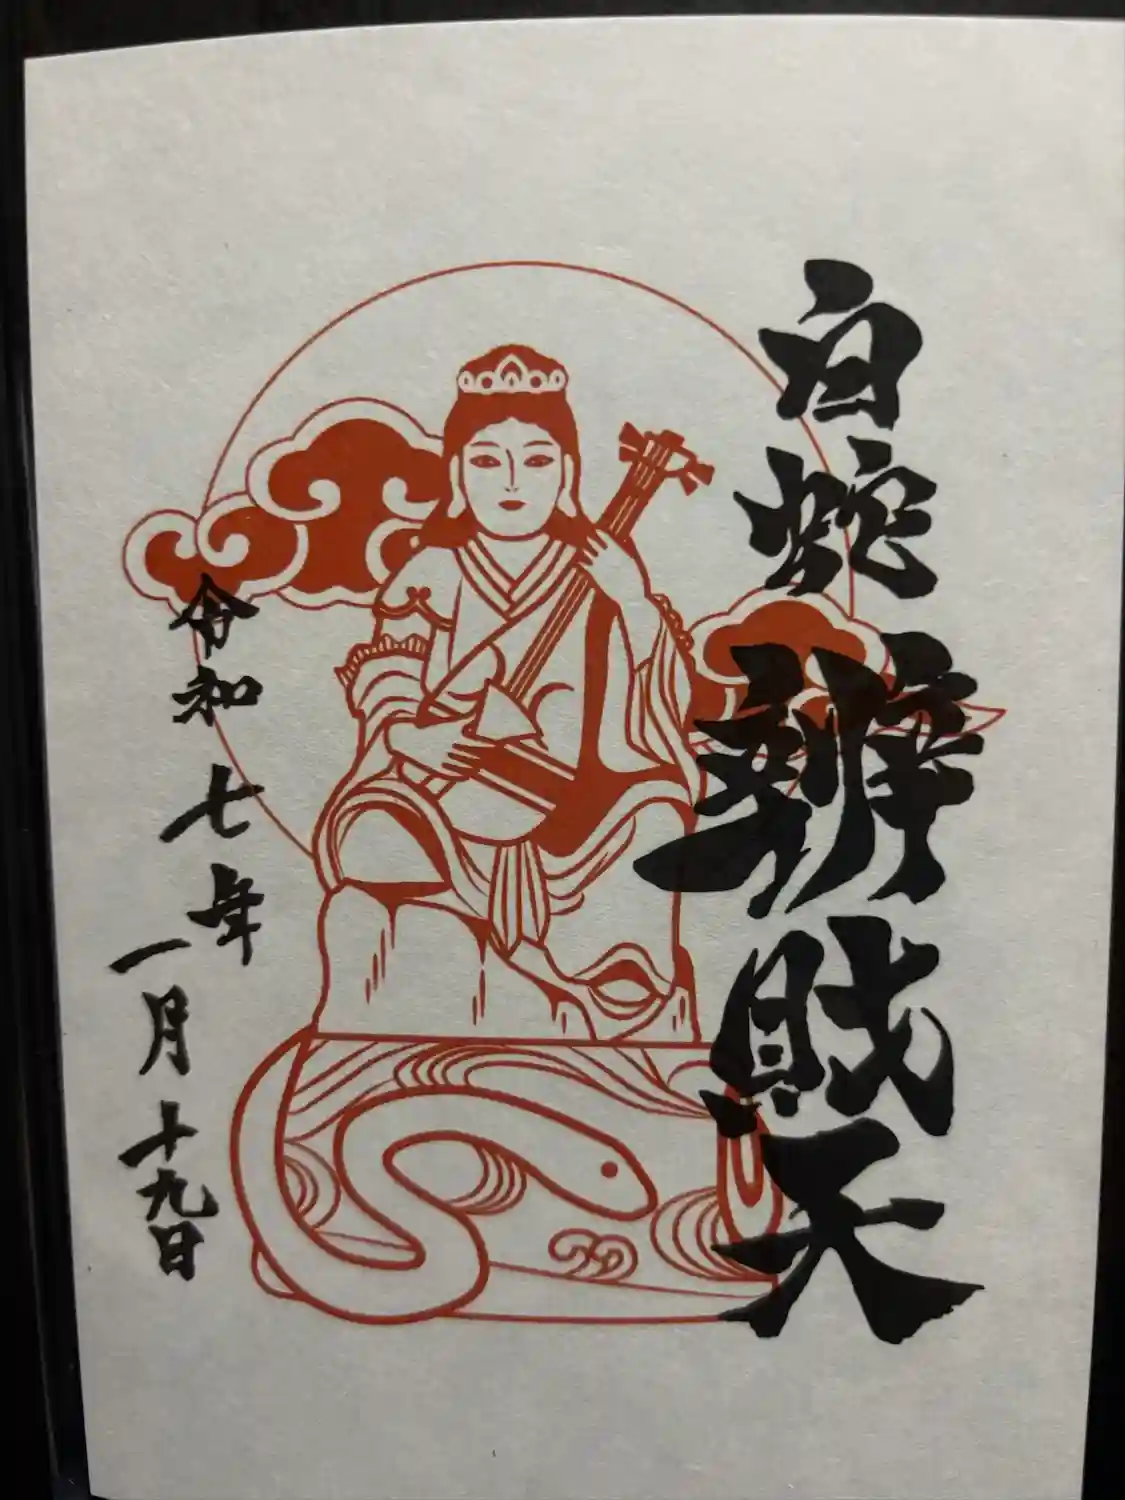 白蛇辨財天
令和七年
一月十九日